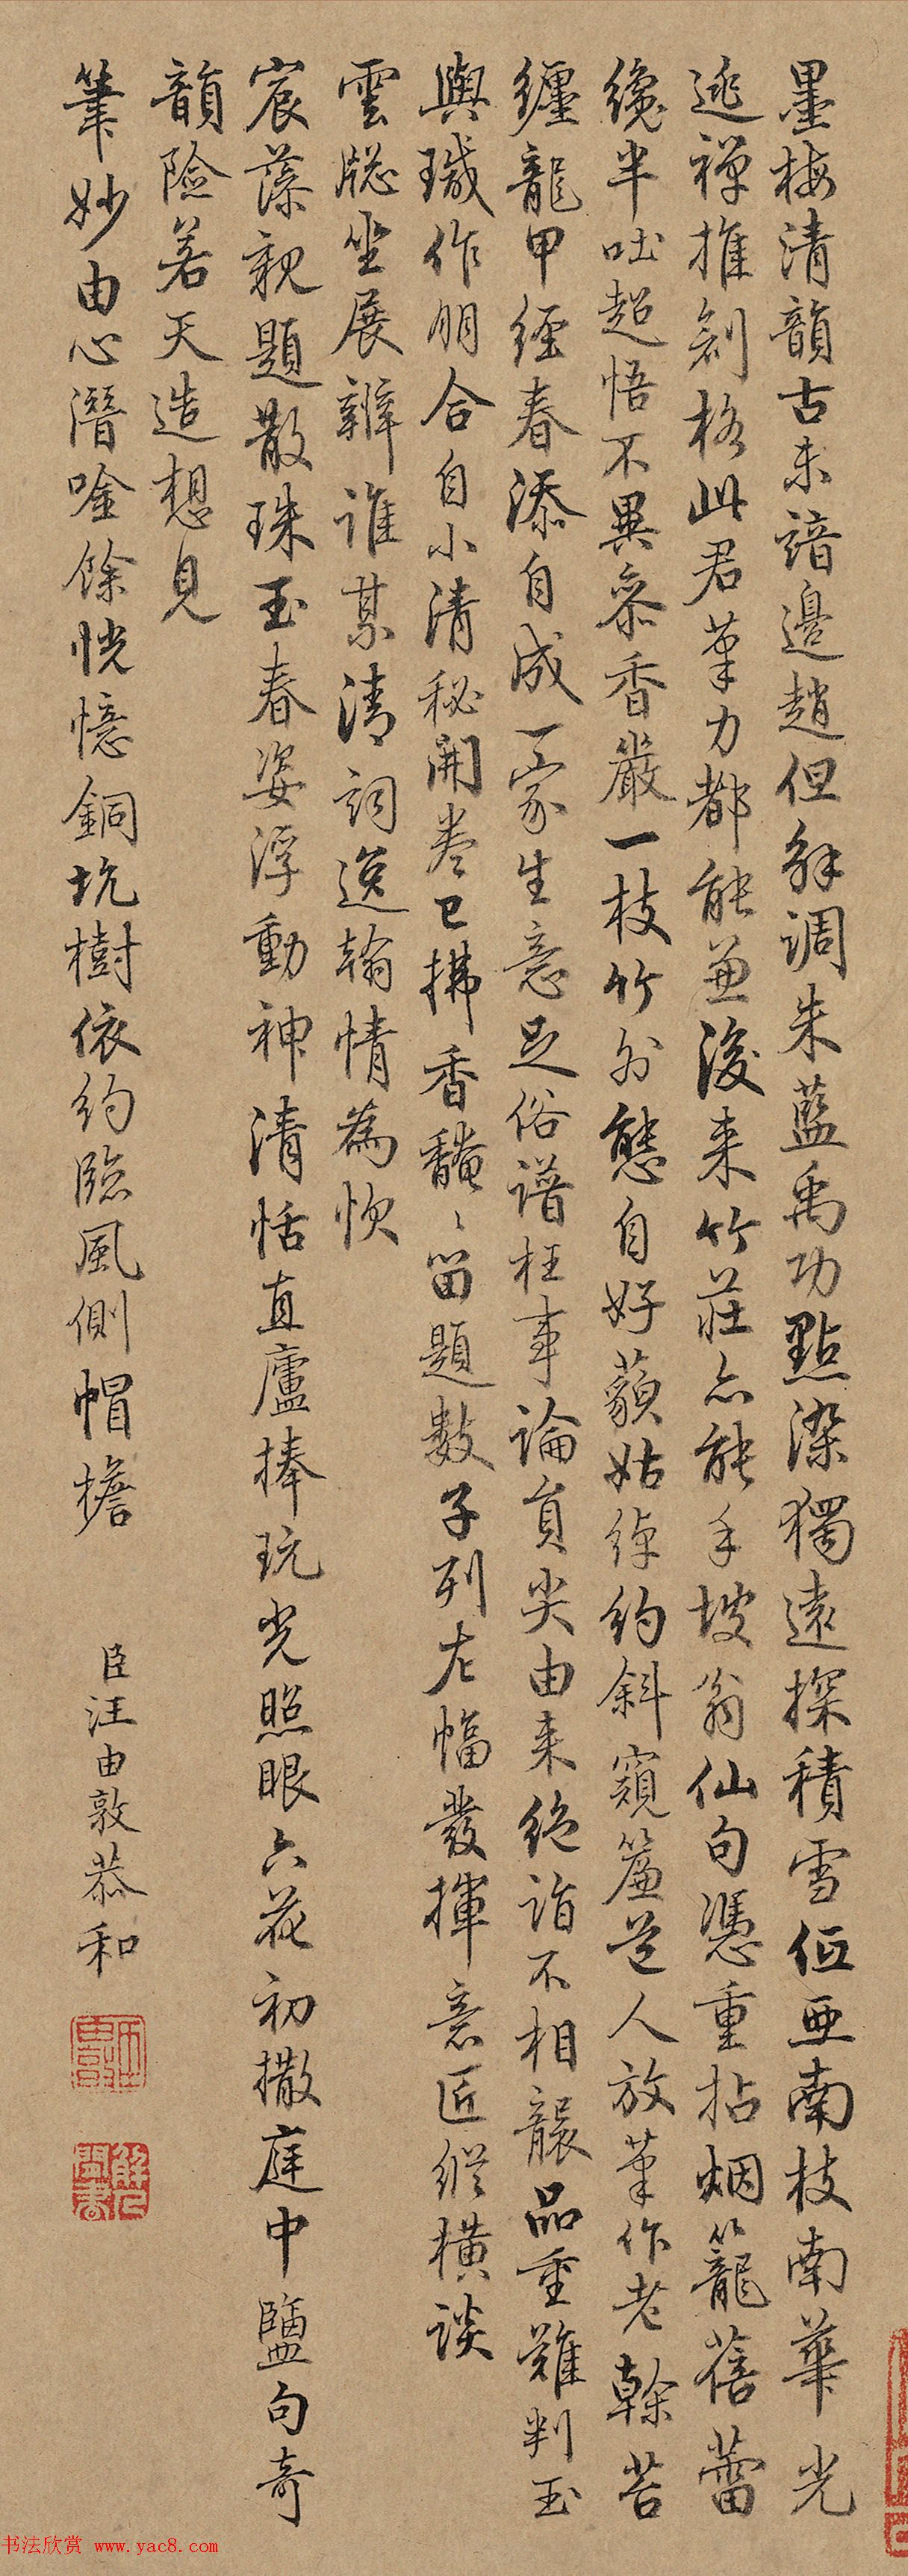 墨梅清韻古未諳邊趙但解調朱藍禹功點染獨遠探積雪低亞南枝南華光
逃禪推創格此君筆力都能兼後来竹莊亦能手坡翁仙句憑重拈烟籠蓓蕾
纔半吐超悟不異參香嚴一枝竹外態自好藐姑綽約斜窺簾道人放筆作老榦苔
纏龍甲經春添自成一家生意足俗譜枉事論員尖由来絶詣不相襲品重難判玉
與瑊作朋合自小清秘開卷已拂香馣馣留題數子列左幅發揮意匠縱横談
雲牕坐展辨誰某清詞逸翰情為忺
宸藻親題散珠玉春姿浮動神清恬直廬捧玩光照眼六花初撒庭中鹽句奇
韻險若天造想見
筆妙由心潛唫餘恍憶銅坑樹依約臨風側帽檐
臣汪由敦恭和
书法欣赏 www.yac8.com